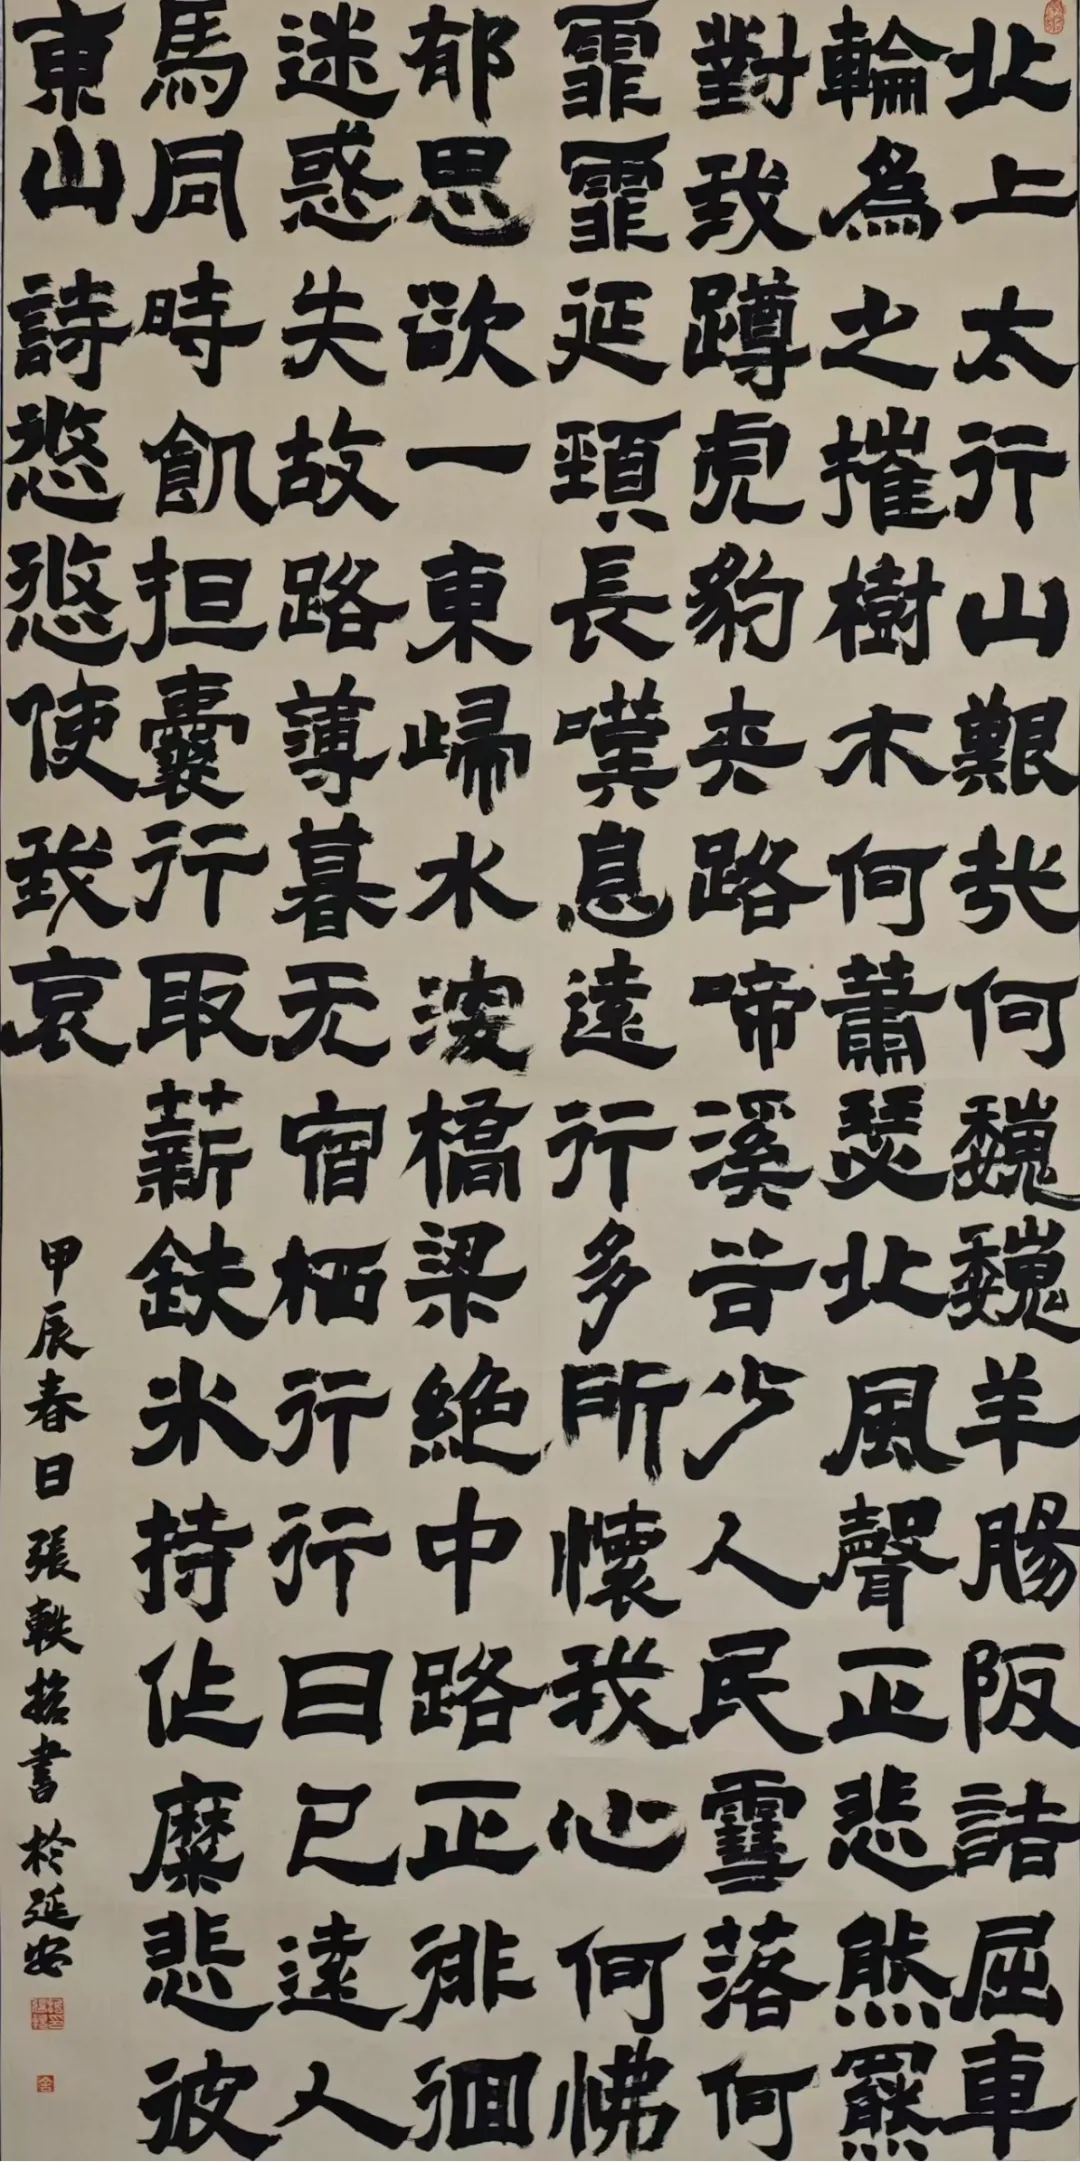 北上太行山艱哉何巍巍羊腸阪詰屈車
輪為之摧樹木何蕭瑟北風聲正悲熊羆
對我蹲虎豹夾路啼溪谷少人民雪落何
霏霏延頸長嘆息遠行多所懷我心何怫
郁思欲一東歸水深橋梁絕中路正徘徊
迷惑失故路薄暮无宿栖行行日已遠人
馬同時飢担囊行取薪鈇氷持作糜悲彼
東山詩悠悠使我哀
甲辰春日張軼書於延安